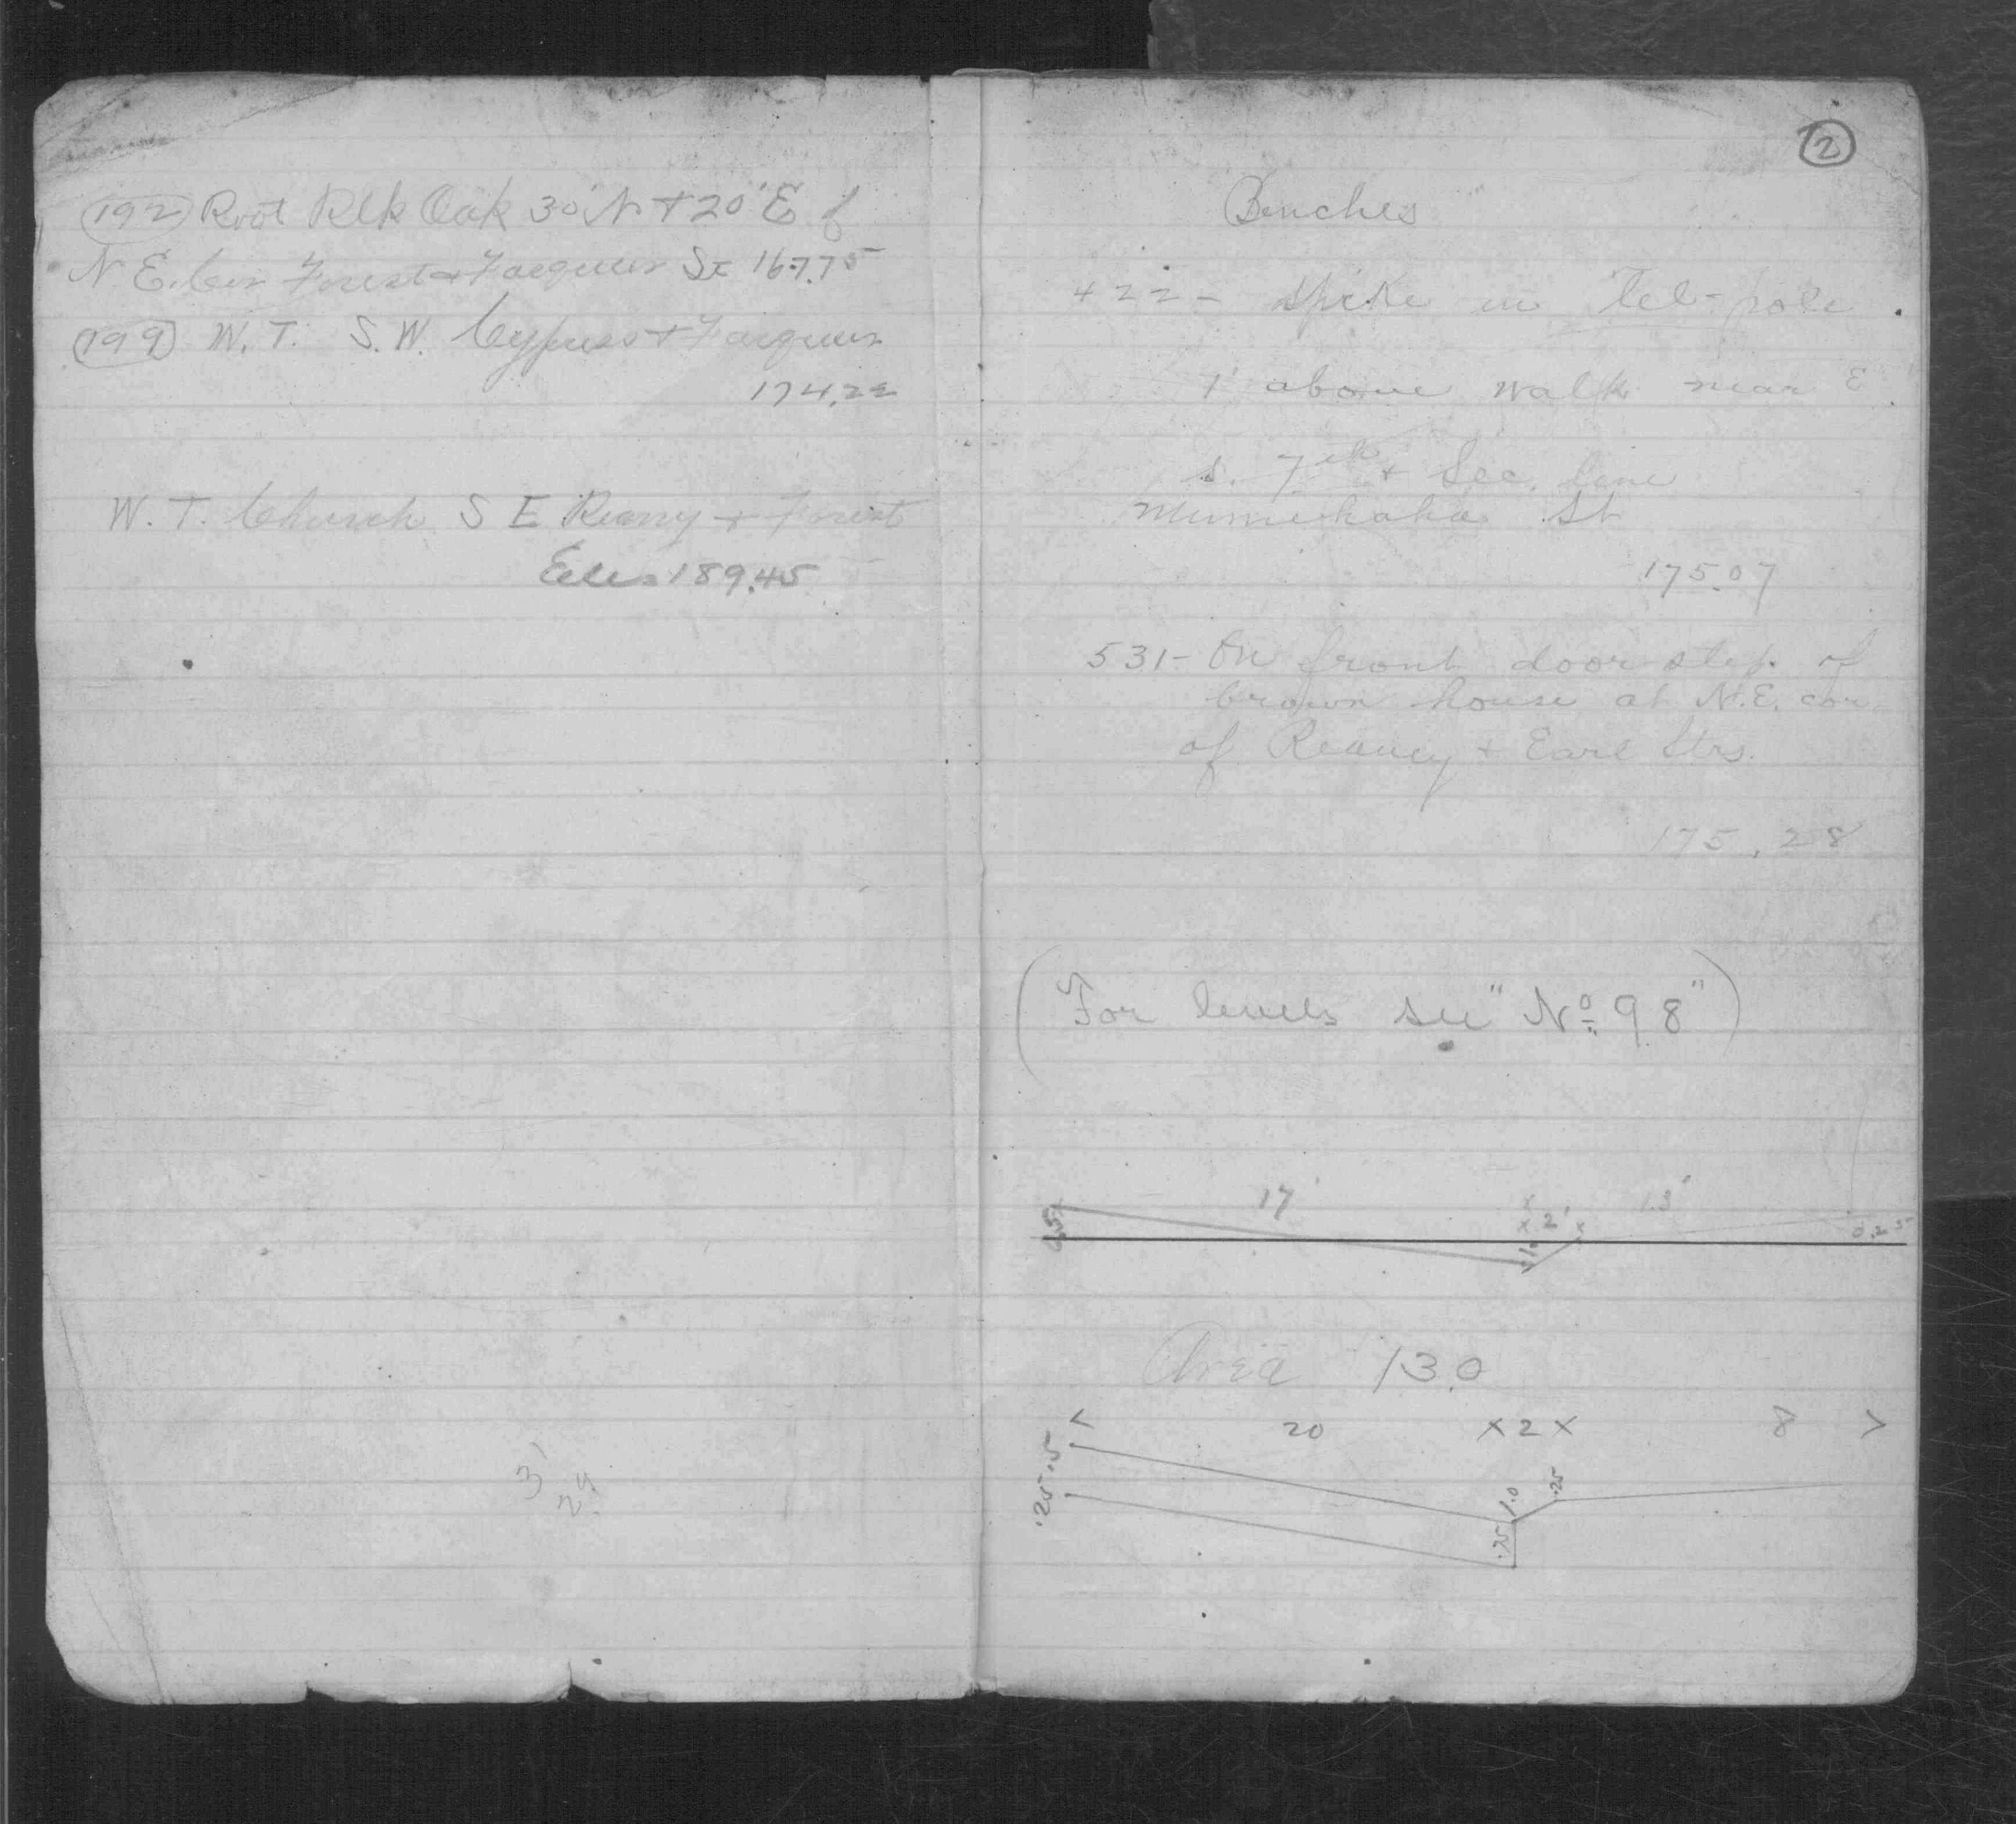 (192) Root Blk Oak 30' N + 20' E of
N.E. Cor Forest + Farquier St 167.75
(199) W.T. S.W. Cypress + Farquier
174.22
W.T. Church S E Reany + Forest
Elev 189.45
3
24
2
Benches
422 - Spike in Tel-pole
1' above walk near E
s. 7th + Sec. line
Minnehaha St
175.07
531 - On front door-step of
brown house at N.E. cor.
of Reaney + Earl Strs.
175.28
(For levels see "No 98")
17' x 2' x 13'
0.25
Area 13.0
< 20 x 2 x 8 >
.5
.25
1.0
.25
.75